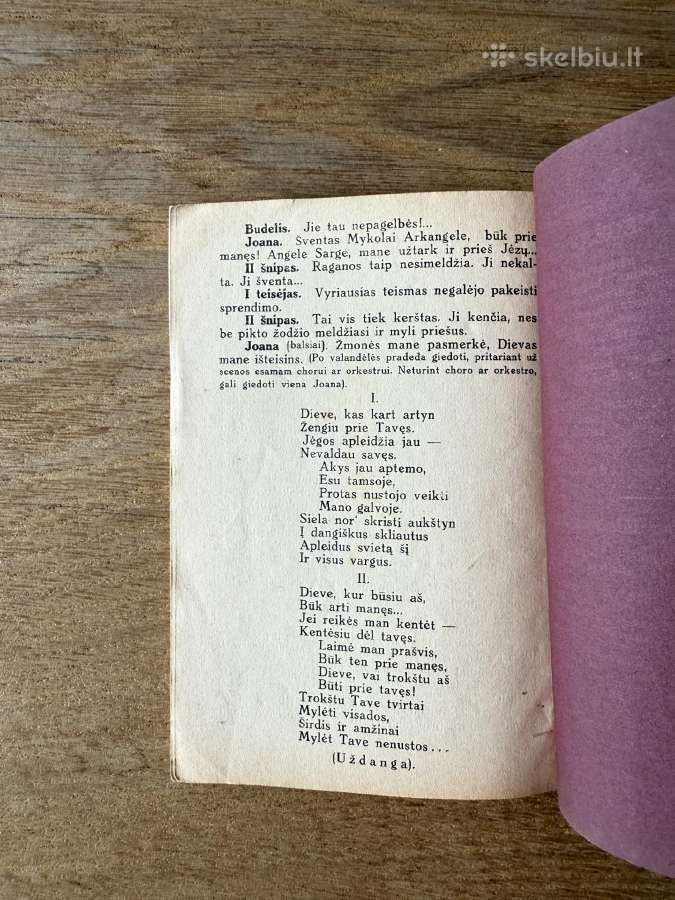 skelbiu.lt
Budelis. Jie tau nepagelbės!...
Joana. Šventas Mykolai Arkangele, būk prie
manęs! Angele Sarge, mane užtark ir prieš Jėzų...
II šnipas. Raganos taip nesimeldžia. Ji nekal-
ta. Ji šventa...
I teisėjas. Vyriausias teismas negalėjo pakeisti
sprendimo.
II šnipas. Tai vis tiek kerštas. Ji kenčia, nes
be pikto žodžio meldžiasi ir myli priešus.
Joana (balsiai). Žmonės mane pasmerkė, Dievas
mane išteisins. (Po valandėlės pradeda giedoti, pritariant už
scenos esamam chorui ar orkestrui. Neturint choro ar orkestro,
gali giedoti viena Joana).
I.
Dieve, kas kart artyn
Žengiu prie Tavęs.
Jėgos apleidžia jau —
Nevaldau savęs.
Akys jau aptemo,
Esu tamsoje,
Protas nustojo veikti
Mano galvoje.
Siela nor' skristi aukštyn
Į dangiškus skliautus
Apleidus svietą šį
Ir visus vargus.
II.
Dieve, kur būsiu aš,
Būk arti manęs...
Jei reikės man kentėt —
Kentėsiu dėl tavęs.
Laimė man prašvis,
Būk ten prie manęs,
Dieve, vai trokštu aš
Būti prie tavęs!
Trokštu Tave tvirtai
Mylėti visados,
Širdis ir amžinai
Mylėt Tave nenustos...
(Uždanga).